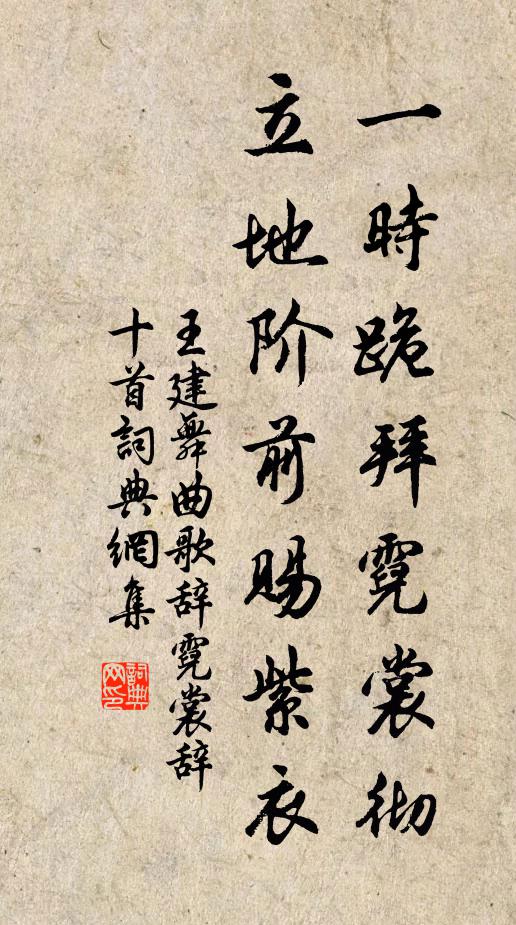 一時跪拜霓裳彻
立地阶前賜紫衣
王建舞曲歌辞霓裳辞
十首詞典網集
詞典网印